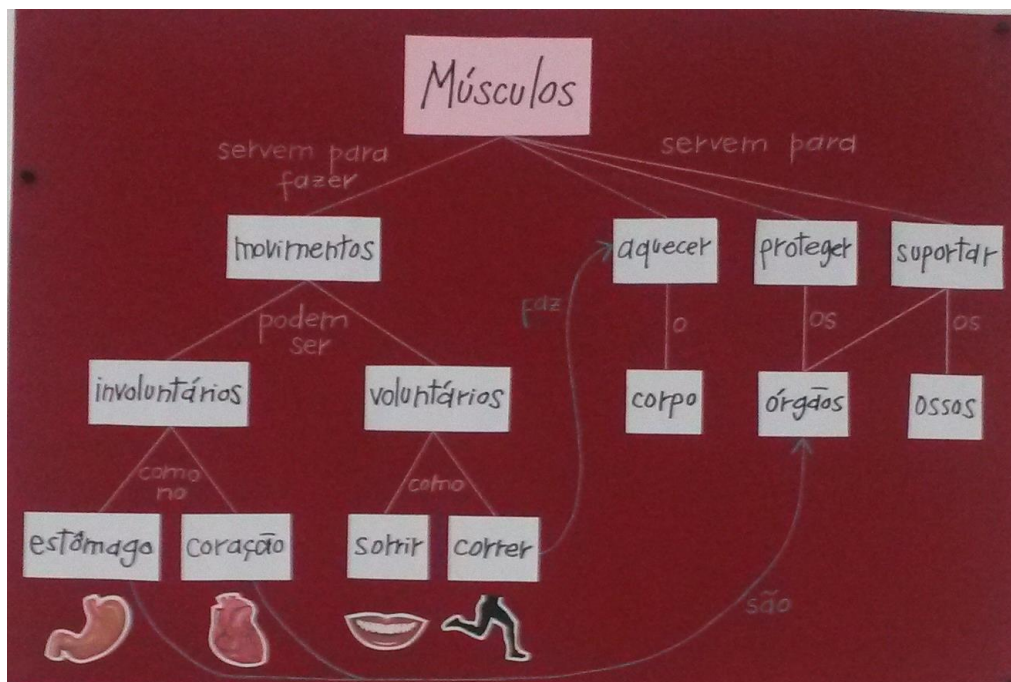 Músculos
servem para
fazer
servem para
movimentos
aquecer
proteger
suportar
podem
ser
faz
o
os
os
involuntários
voluntários
corpo
órgãos
ossos
como
no
como
estômago
coração
sorrir
correr
são